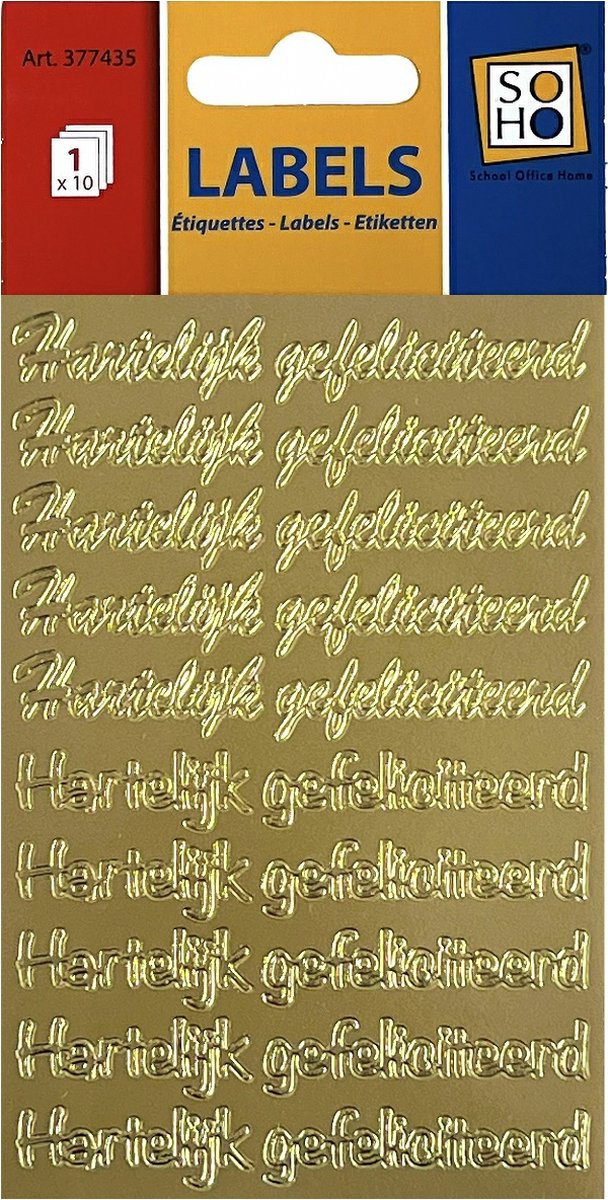 Art. 377435
1
x 10
LABELS
Étiquettes - Labels - Etiketten
SO
HO
®
School Office Home
Hartelijk gefeliciteerd
Hartelijk gefeliciteerd
Hartelijk gefeliciteerd
Hartelijk gefeliciteerd
Hartelijk gefeliciteerd
Hartelijk gefeliciteerd
Hartelijk gefeliciteerd
Hartelijk gefeliciteerd
Hartelijk gefeliciteerd
Hartelijk gefeliciteerd